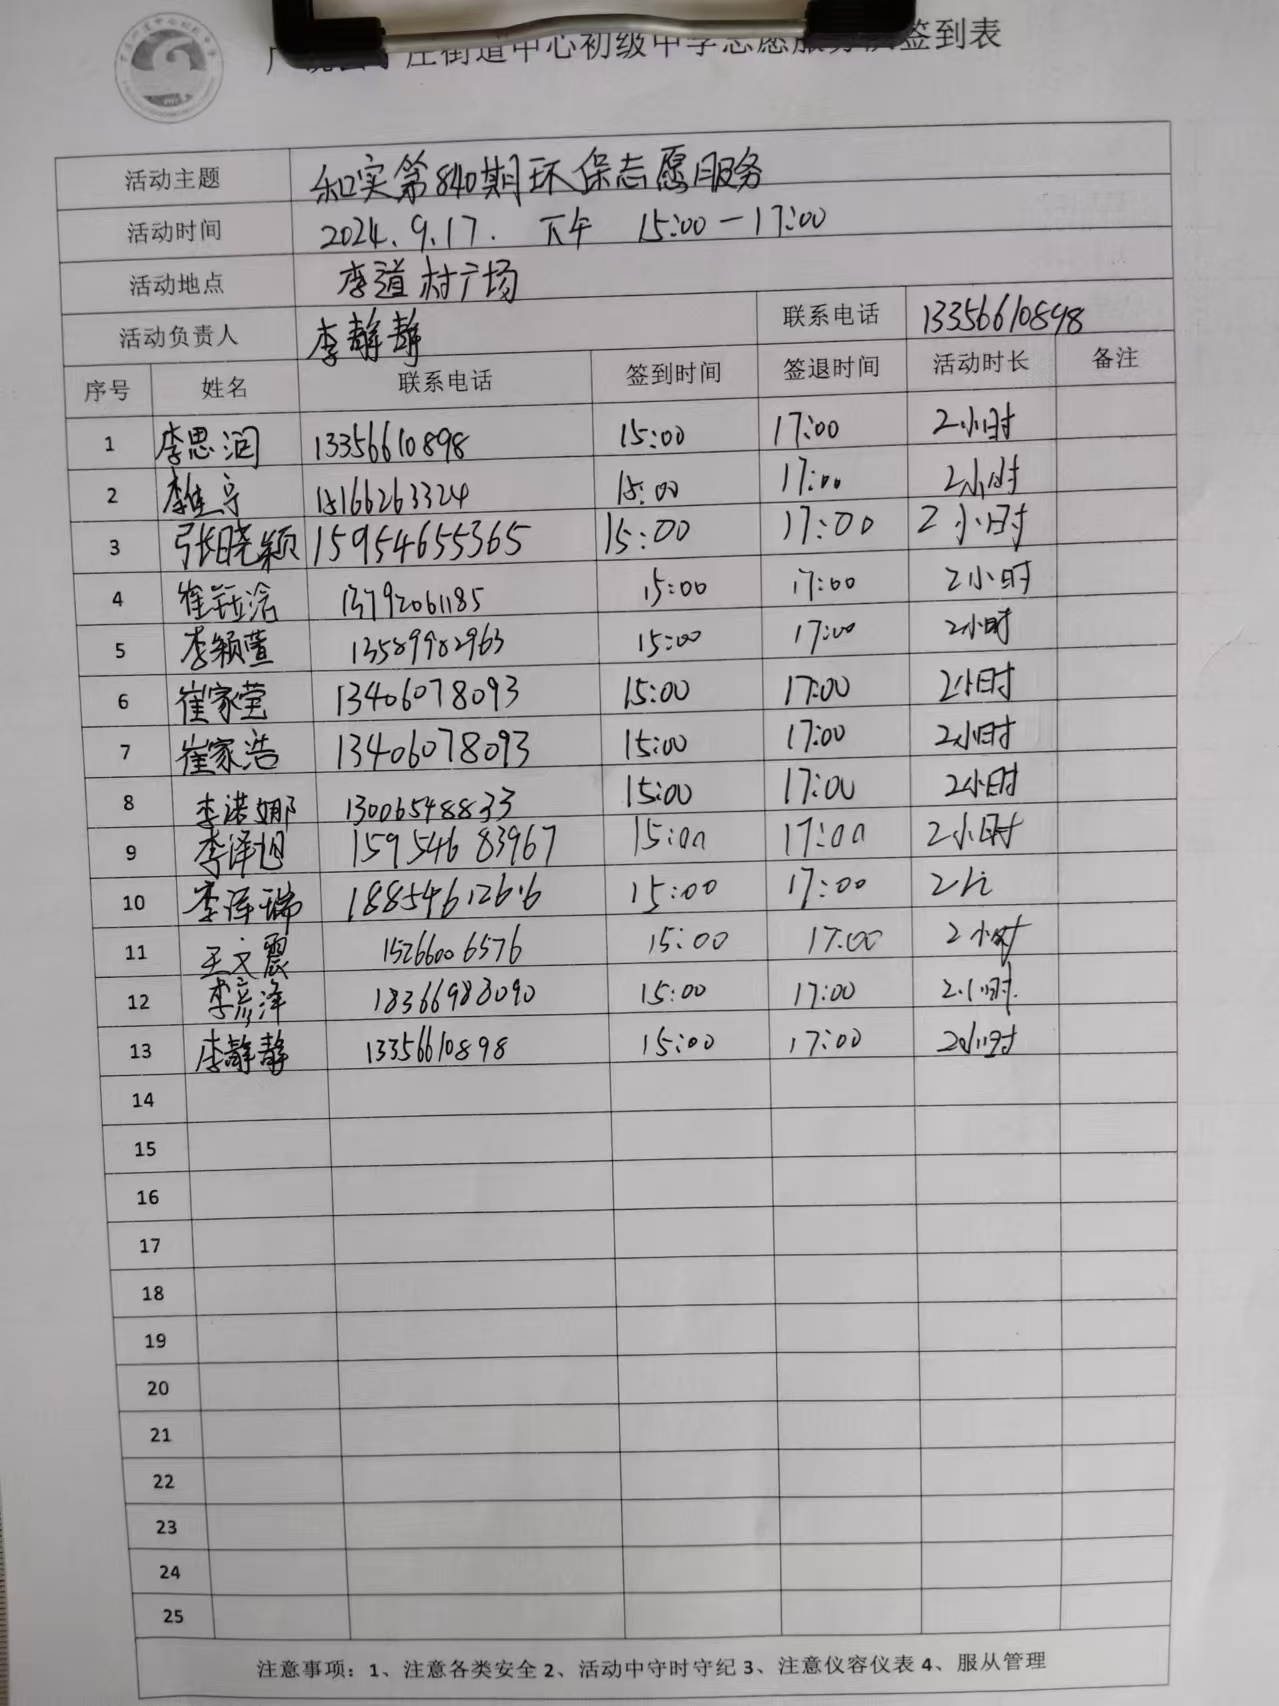 街道中心初级中学志愿服务队签到表
活动主题 和实第840期环保志愿服务
活动时间 2024.9.17. 下午 15:00-17:00
活动地点 李道村广场
活动负责人 李静静 联系电话 13356610898
序号 姓名 联系电话 签到时间 签退时间 活动时长 备注
1 李思润 13356610898 15:00 17:00 2小时
2 15166263324 15:00 17:00 2小时
3 张晓颖 15954655365 15:00 17:00 2小时
4 崔钰涵 13792061185 15:00 17:00 2小时
5 李颖萱 13589982963 15:00 17:00 2小时
6 崔家莹 13406078093 15:00 17:00 2小时
7 崔家浩 13406078093 15:00 17:00 2小时
8 李诺娜 13006548833 15:00 17:00 2小时
9 李泽旭 15954683967 15:00 17:00 2小时
10 李泽瑞 18854612616 15:00 17:00 2h
11 王文震 15266006576 15:00 17:00 2小时
12 李彦泽 18366983090 15:00 17:00 2小时.
13 李静静 13356610898 15:00 17:00 2小时
14
15
16
17
18
19
20
21
22
23
24
25
注意事项：1、注意各类安全 2、活动中守时守纪 3、注意仪容仪表 4、服从管理